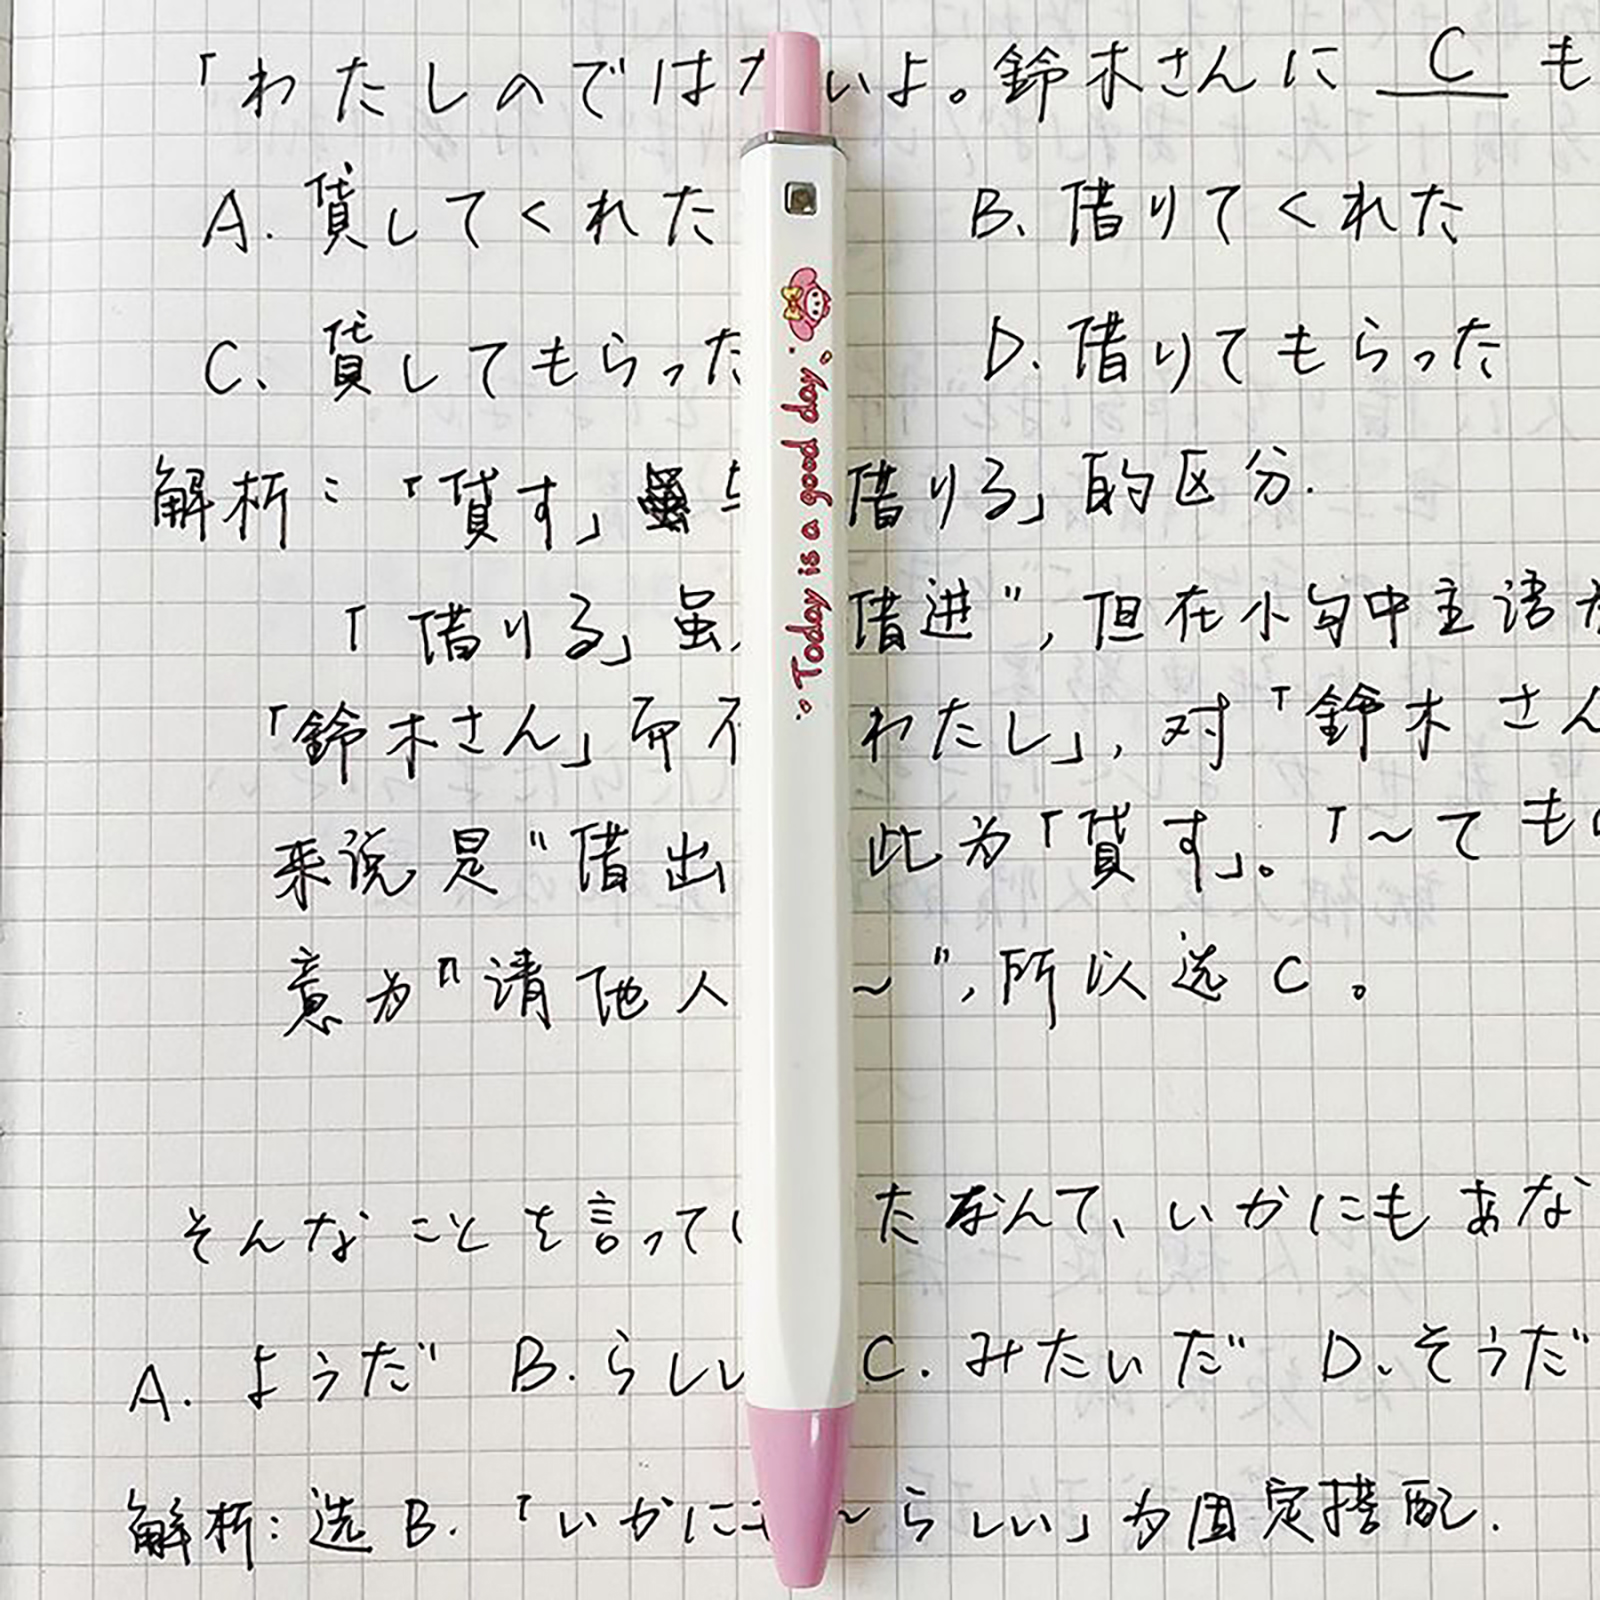 「わたしのではないよ。鈴木さんに C も
A. 貸してくれた B. 借りてくれた
C. 貸してもらった D. 借りてもらった
解析：「貸す」 借りる」的区分.
「借りる」虽 借进"，但在小句中主语
「鈴木さん」而不 わたし」，对「鈴木さん
来说是"借出 此为「貸す」。「～ても
意为"请他人 ～"，所以选 C。
そんなことを言って たなんて、いかにもあな
A. ようだ B. らしい C. みたいだ D. そうだ
解析：选 B. 「いかにも～らしい」为固定搭配.
Today is a good day